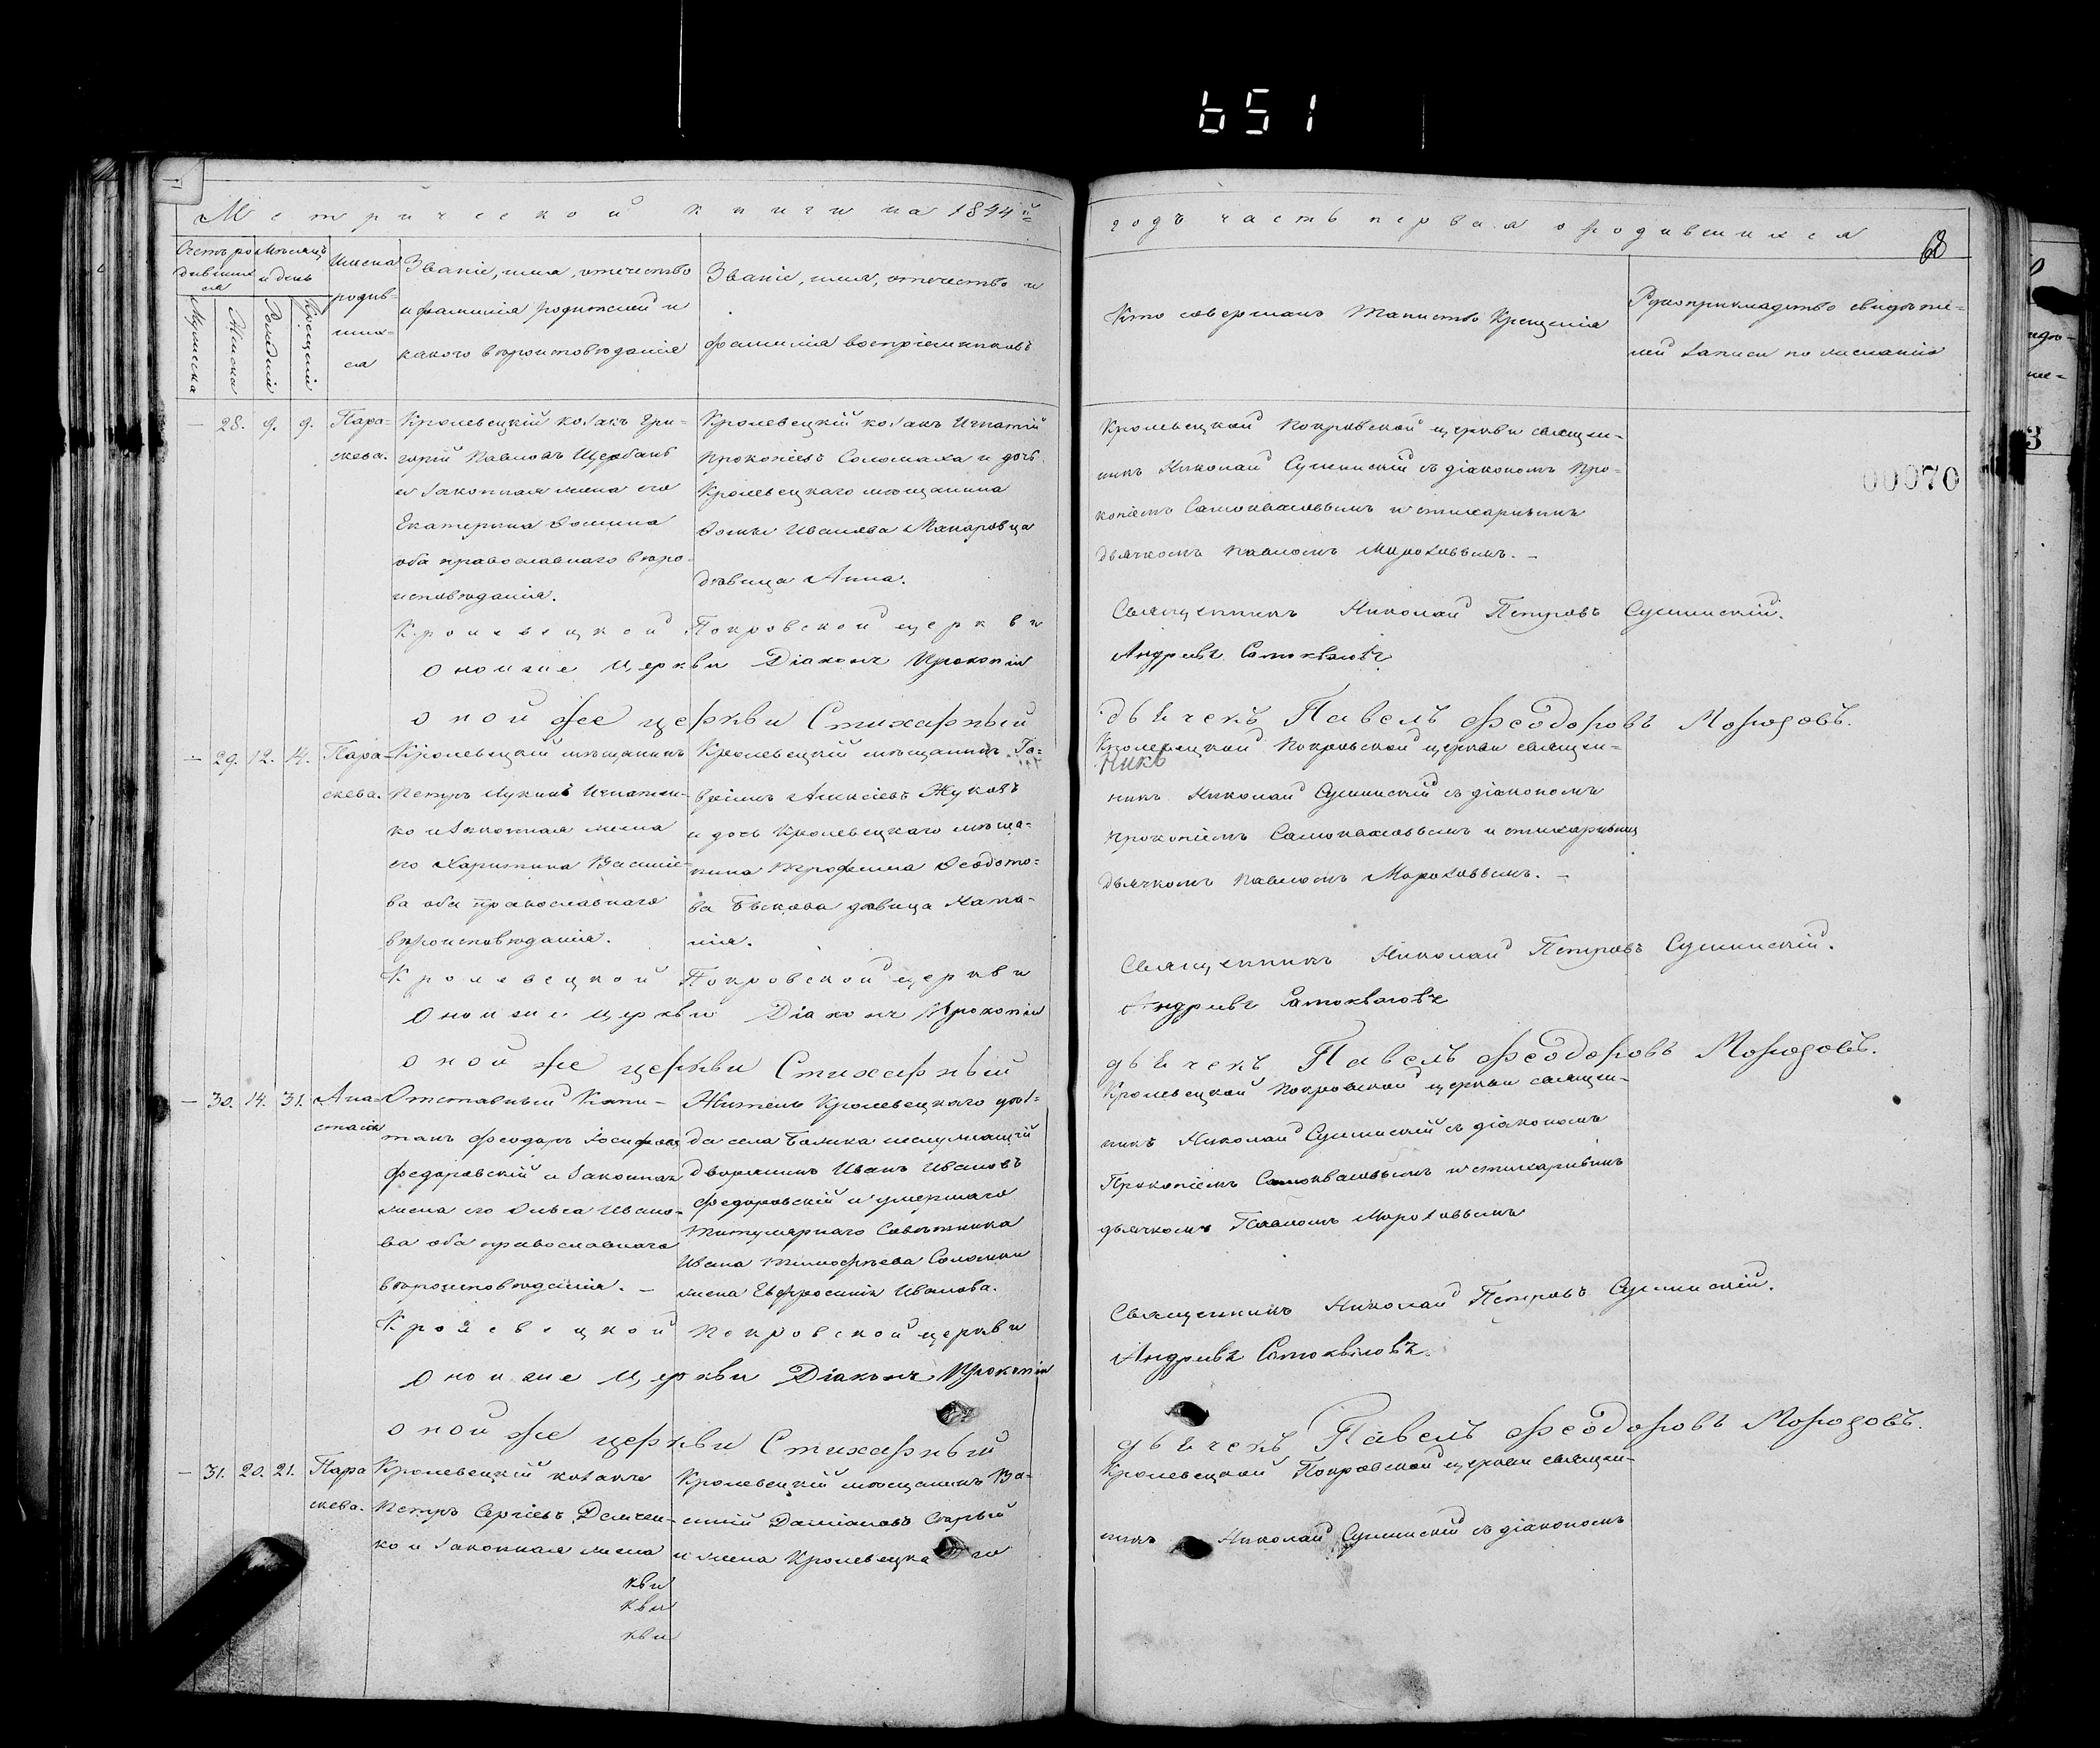 651
Метрической книги на 1894й
годъ часть первая о родившихся
68
Счетъ родившихся
Мѣсяцъ и день
Мужеска
Женска
Рожденія
Крещенія
Имена
родив-
ших-
ся
Званіе, имя, отечество
и фамилія родителей и
какого вѣроисповѣданія
Званіе, имя, отечество и
фамилія воспріемниковъ
Кто совершалъ Таинство Крещенія
Рукоприкладство свидѣте-
лей записи по желанію
00070
— 28. 9. 9.
Пара-
скева.
Кролевецкій козакъ Гри-
горій Павловъ Щербакъ
и законная жена его
Екатерина Фомина
оба православнаго вѣро-
исповѣданія.
Кролевецкій козакъ Игнатій
Прокопіевъ Соломаха и дочь
Кролевецкаго мѣщанина
Фомы Иванова Макаровца
дѣвица Анна.
Кролевецкой Покровской церкви священ-
никъ Николай Сушинскій съ діакономъ Про-
копіемъ Самоквасовымъ и стихарнымъ
дьячкомъ Павломъ Морозовымъ. —
Кролевецкой Покровской церкви
Священникъ Николай Петровъ Сушинскій.
Оной же Церкви Діаконъ Прокопій
Андріевъ Самоквасовъ
оной же церкви Стихарный
дьячекъ Павелъ Феодоровъ Морозовъ.
— 29. 12. 14.
Пара-
скева.
Кролевецкій мѣщанинъ
Петръ Лукинъ Игнатен-
ко и законная жена
его Харитина Василіе-
ва оба православнаго
вѣроисповѣданія.
Кролевецкій мѣщанинъ Га-
вріилъ Алексіевъ Жуковъ
и дочь Кролевецкаго мѣща-
нина Трофима Феодото-
ва Быкова дѣвица Ната-
лія.
Кролевецкой Покровской церкви священ-
никъ
никъ Николай Сушинскій съ діакономъ
Прокопіемъ Самоквасовымъ и стихарнымъ
дьячкомъ Павломъ Морозовымъ. —
Кролевецкой Покровской церкви
Священникъ Николай Петровъ Сушинскій.
Оной же церкви Діаконъ Прокопій
Андріевъ Самоквасовъ
оной же церкви Стихарный
дьячекъ Павелъ Феодоровъ Морозовъ.
— 30. 14. 31.
Ана-
стасія
Отставный Капи-
танъ Феодоръ Іосифовъ
Федоровскій и законная
жена его Ольга Ивано-
ва оба православнаго
вѣроисповѣданія. —
Житель Кролевецкаго уѣз-
да села неслужащій
дворянинъ Иванъ Ивановъ
Федоровскій и умершаго
Титулярнаго Совѣтника
Ивана Тимофѣева
жена Евфросинія Иванова.
Кролевецкой Покровской церкви священ-
никъ Николай Сушинскій съ діакономъ
Прокопіемъ Самоквасовымъ и стихарнымъ
дьячкомъ Павломъ Морозовымъ
Кролевецкой Покровской церкви
Священникъ Николай Петровъ Сушинскій.
Оной же Церкви Діаконъ Прокопій
Андріевъ Самоквасовъ.
оной же церкви Стихарный
дьячекъ Павелъ Феодоровъ Морозовъ.
— 31. 20. 21.
Пара
скева.
Кролевецкій козакъ
Петръ Сергіевъ Демчен-
ко и законная жена
Кролевецкій мѣщанинъ Ва-
силій Даміановъ Старый
и жена Кролевецкаго
Кролевецкой Покровской церкви священ-
никъ Николай Сушинскій съ діакономъ
кви
кви
кви